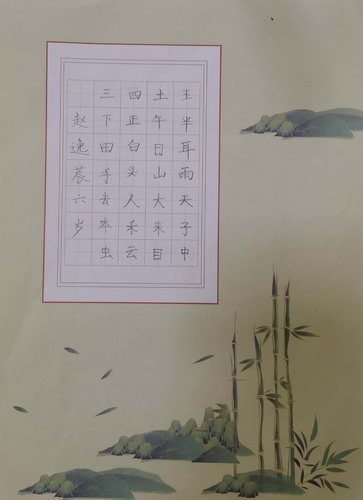 王半耳雨天子中
土午日山大来目
四正白头人禾云
三下田手去本虫
赵逸晨六岁